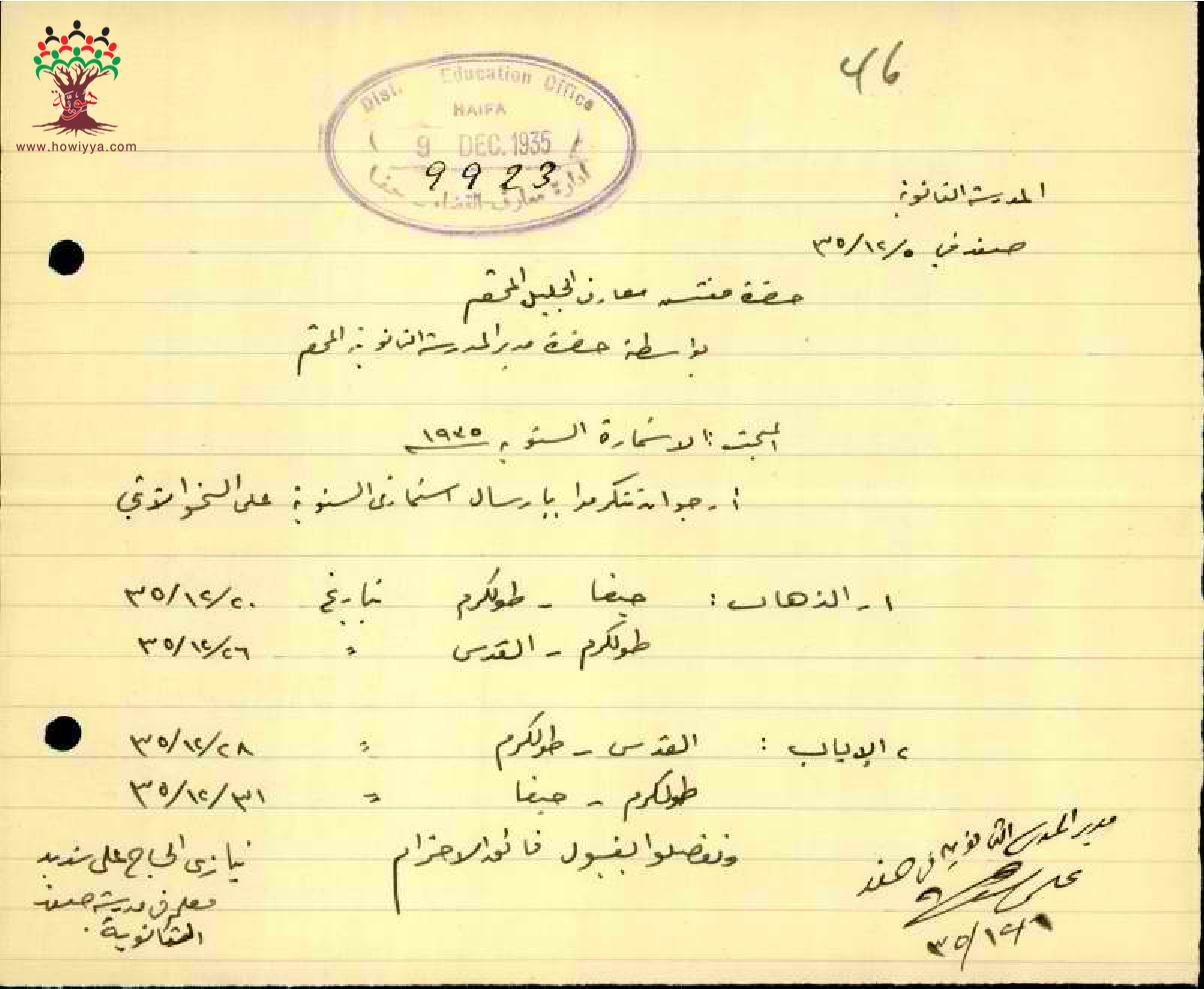 هوية
www.howiyya.com
46
Dist. Education Office
HAIFA
9 DEC. 1935
9923
ادارة معارف القضاء - حيفا
المدرسة الثانوية
صفد في ٣٥/١٢/٥
حضرة مفتش معارف الجليل المحترم
بواسطة حضرة مدير المدرسة الثانوية المحترم
المبحث: الاستمارة السنوية ١٩٣٥
ارجو ان تتكرموا بارسال استمارتي السنوية على النحو الآتي
١- الذهاب: حيفا - طولكرم بتاريخ ٣٥/١٢/٢٠
طولكرم - القدس " ٣٥/١٢/٢٦
٢ الاياب: القدس - طولكرم " ٣٥/١٢/٢٨
طولكرم - حيفا " ٣٥/١٢/٣١
وتفضلوا بقبول فائق الاحترام
نيازي الحاج علي
معلم في مدرسة صفد
الثانوية.
مدير المدرسة الثانوية في صفد
٣٥/١٢/٦